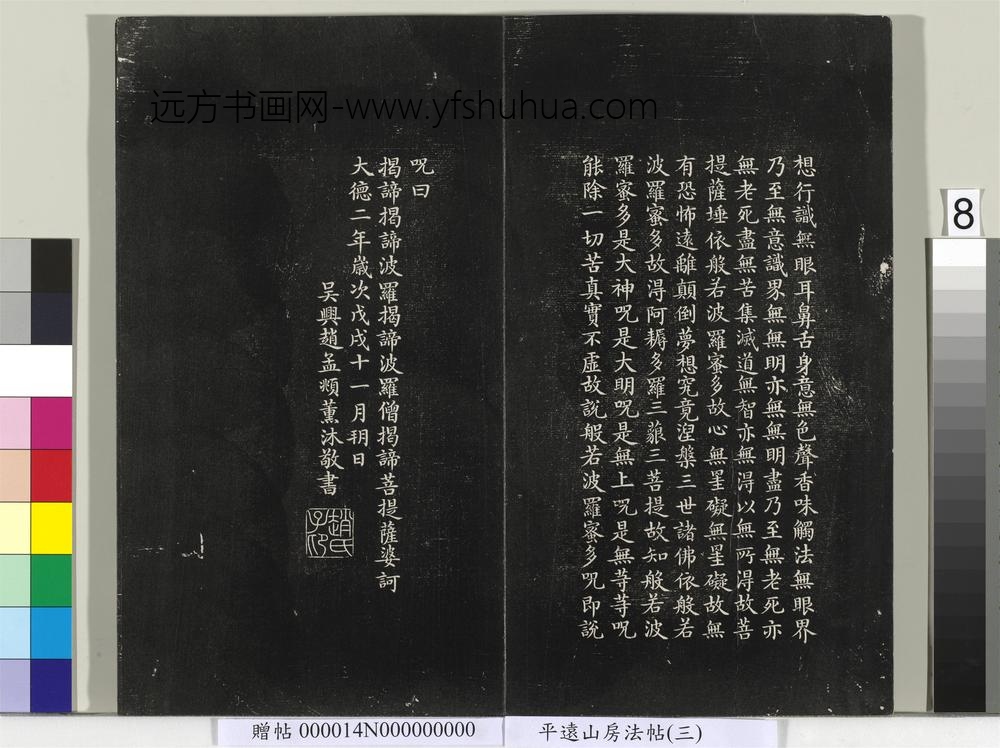 远方书画网-www.yfshuhua.com
想行識無眼耳鼻舌身意無色聲香味觸法無眼界
乃至無意識界無無明亦無無明盡乃至無老死亦
無老死盡無苦集滅道無智亦無得以無所得故菩
提薩埵依般若波羅蜜多故心無罣礙無罣礙故無
有恐怖遠離顛倒夢想究竟涅槃三世諸佛依般若
波羅蜜多故得阿耨多羅三藐三菩提故知般若波
羅蜜多是大神呪是大明呪是無上呪是無等等呪
能除一切苦真實不虛故說般若波羅蜜多呪即說
呪曰
揭諦揭諦波羅揭諦波羅僧揭諦菩提薩婆訶
大德二年歲次戊戌十一月玥日
吳興趙孟頫薰沐敬書
趙氏子印
8
贈帖 000014N000000000
平遠山房法帖(三)